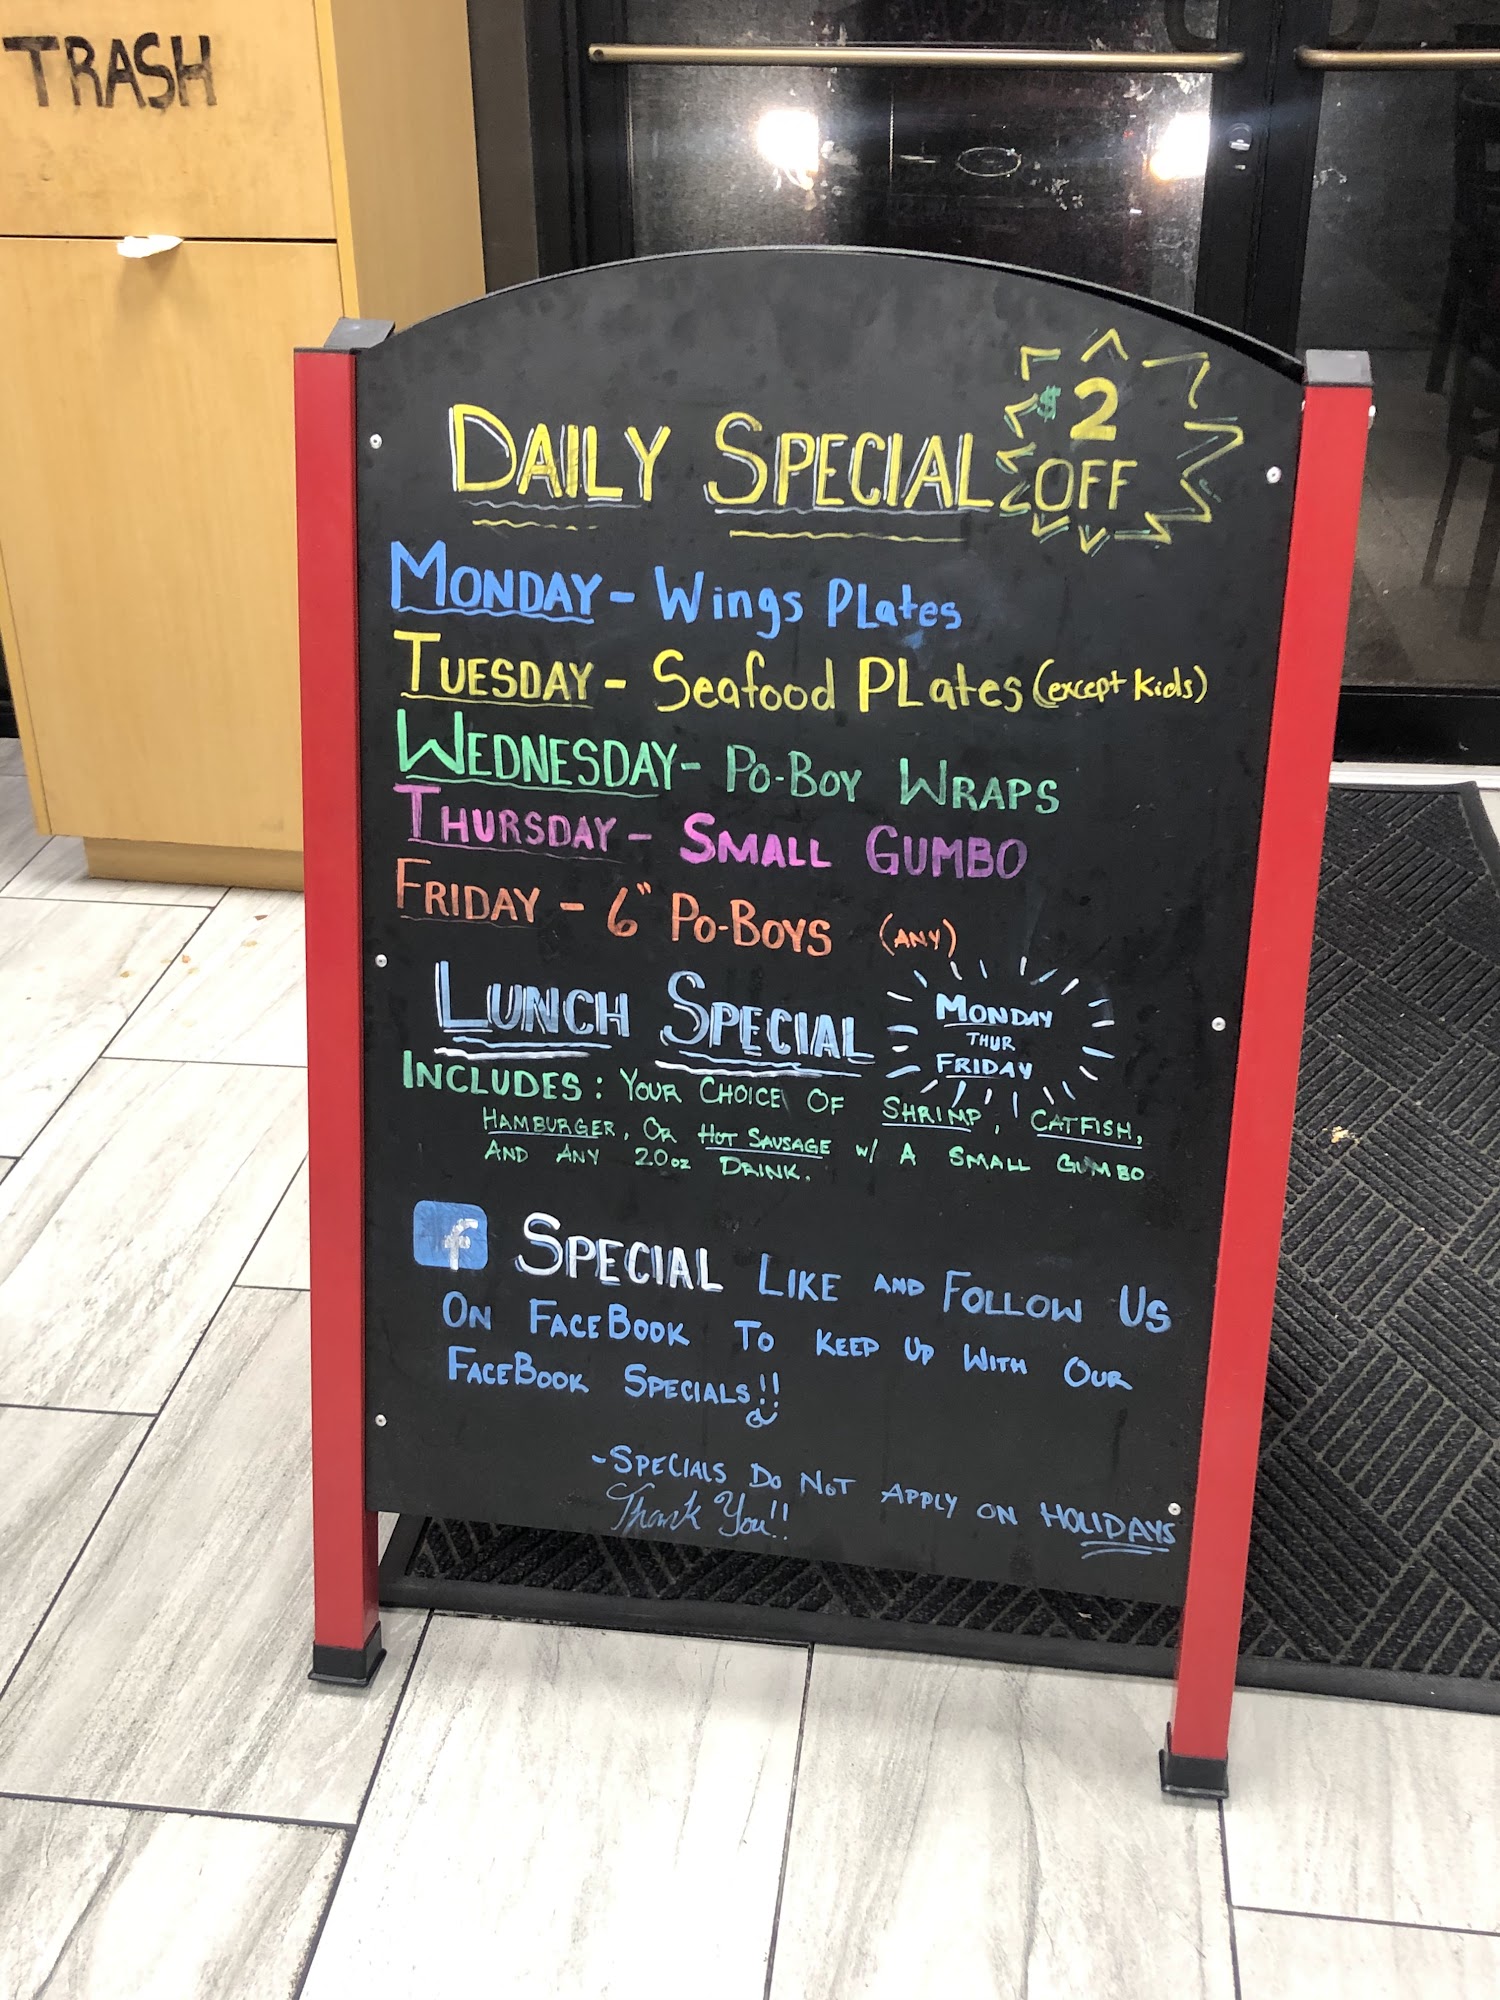 TRASH
DAILY SPECIAL
$2
OFF
MONDAY - Wings PLates
TUESDAY - Seafood PLates (except kids)
WEDNESDAY - PO-BOY WRAPS
THURSDAY - SMALL GUMBO
FRIDAY - 6" PO-BOYS (ANY)
LUNCH SPECIAL
MONDAY
THUR
FRIDAY
INCLUDES: YOUR CHOICE OF SHRIMP, CATFISH,
HAMBURGER, OR HOT SAUSAGE W/ A SMALL GUMBO
AND ANY 20oz DRINK.
f SPECIAL LIKE AND FOLLOW US
ON FACEBOOK TO KEEP UP WITH OUR
FACEBOOK SPECIALS!!
-SPECIALS DO NOT APPLY ON HOLIDAYS
Thank You!!